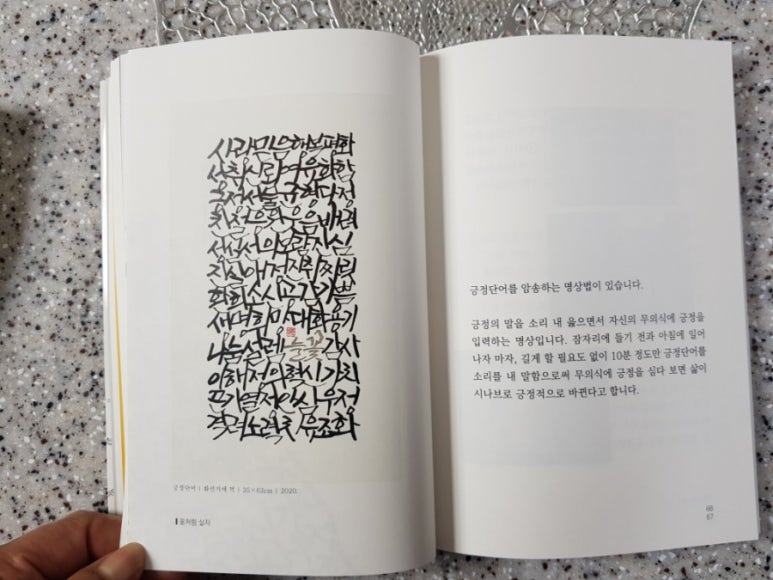 사랑믿음행복평화
성취신뢰여유화합
긍정선물균형다정
친절응원웃음배려
성실정의보람진심
자신애정지위찌릿
화해소신공감기쁨
생명희망대화용기
나눔설렘눈꽃감사
이해정의혁신가치
끈기열정안심우정
격려노력치유조화
긍정단어 | 화선지에 먹 | 35×62cm | 2020.
꽃처럼 살자
긍정단어를 암송하는 명상법이 있습니다.
긍정의 말을 소리 내 읊으면서 자신의 무의식에 긍정을
입력하는 명상입니다. 잠자리에 들기 전과 아침에 일어
나자 마자, 길게 할 필요도 없이 10분 정도만 긍정단어를
소리를 내 말함으로써 무의식에 긍정을 심다 보면 삶이
시나브로 긍정적으로 바뀐다고 합니다.
66
67